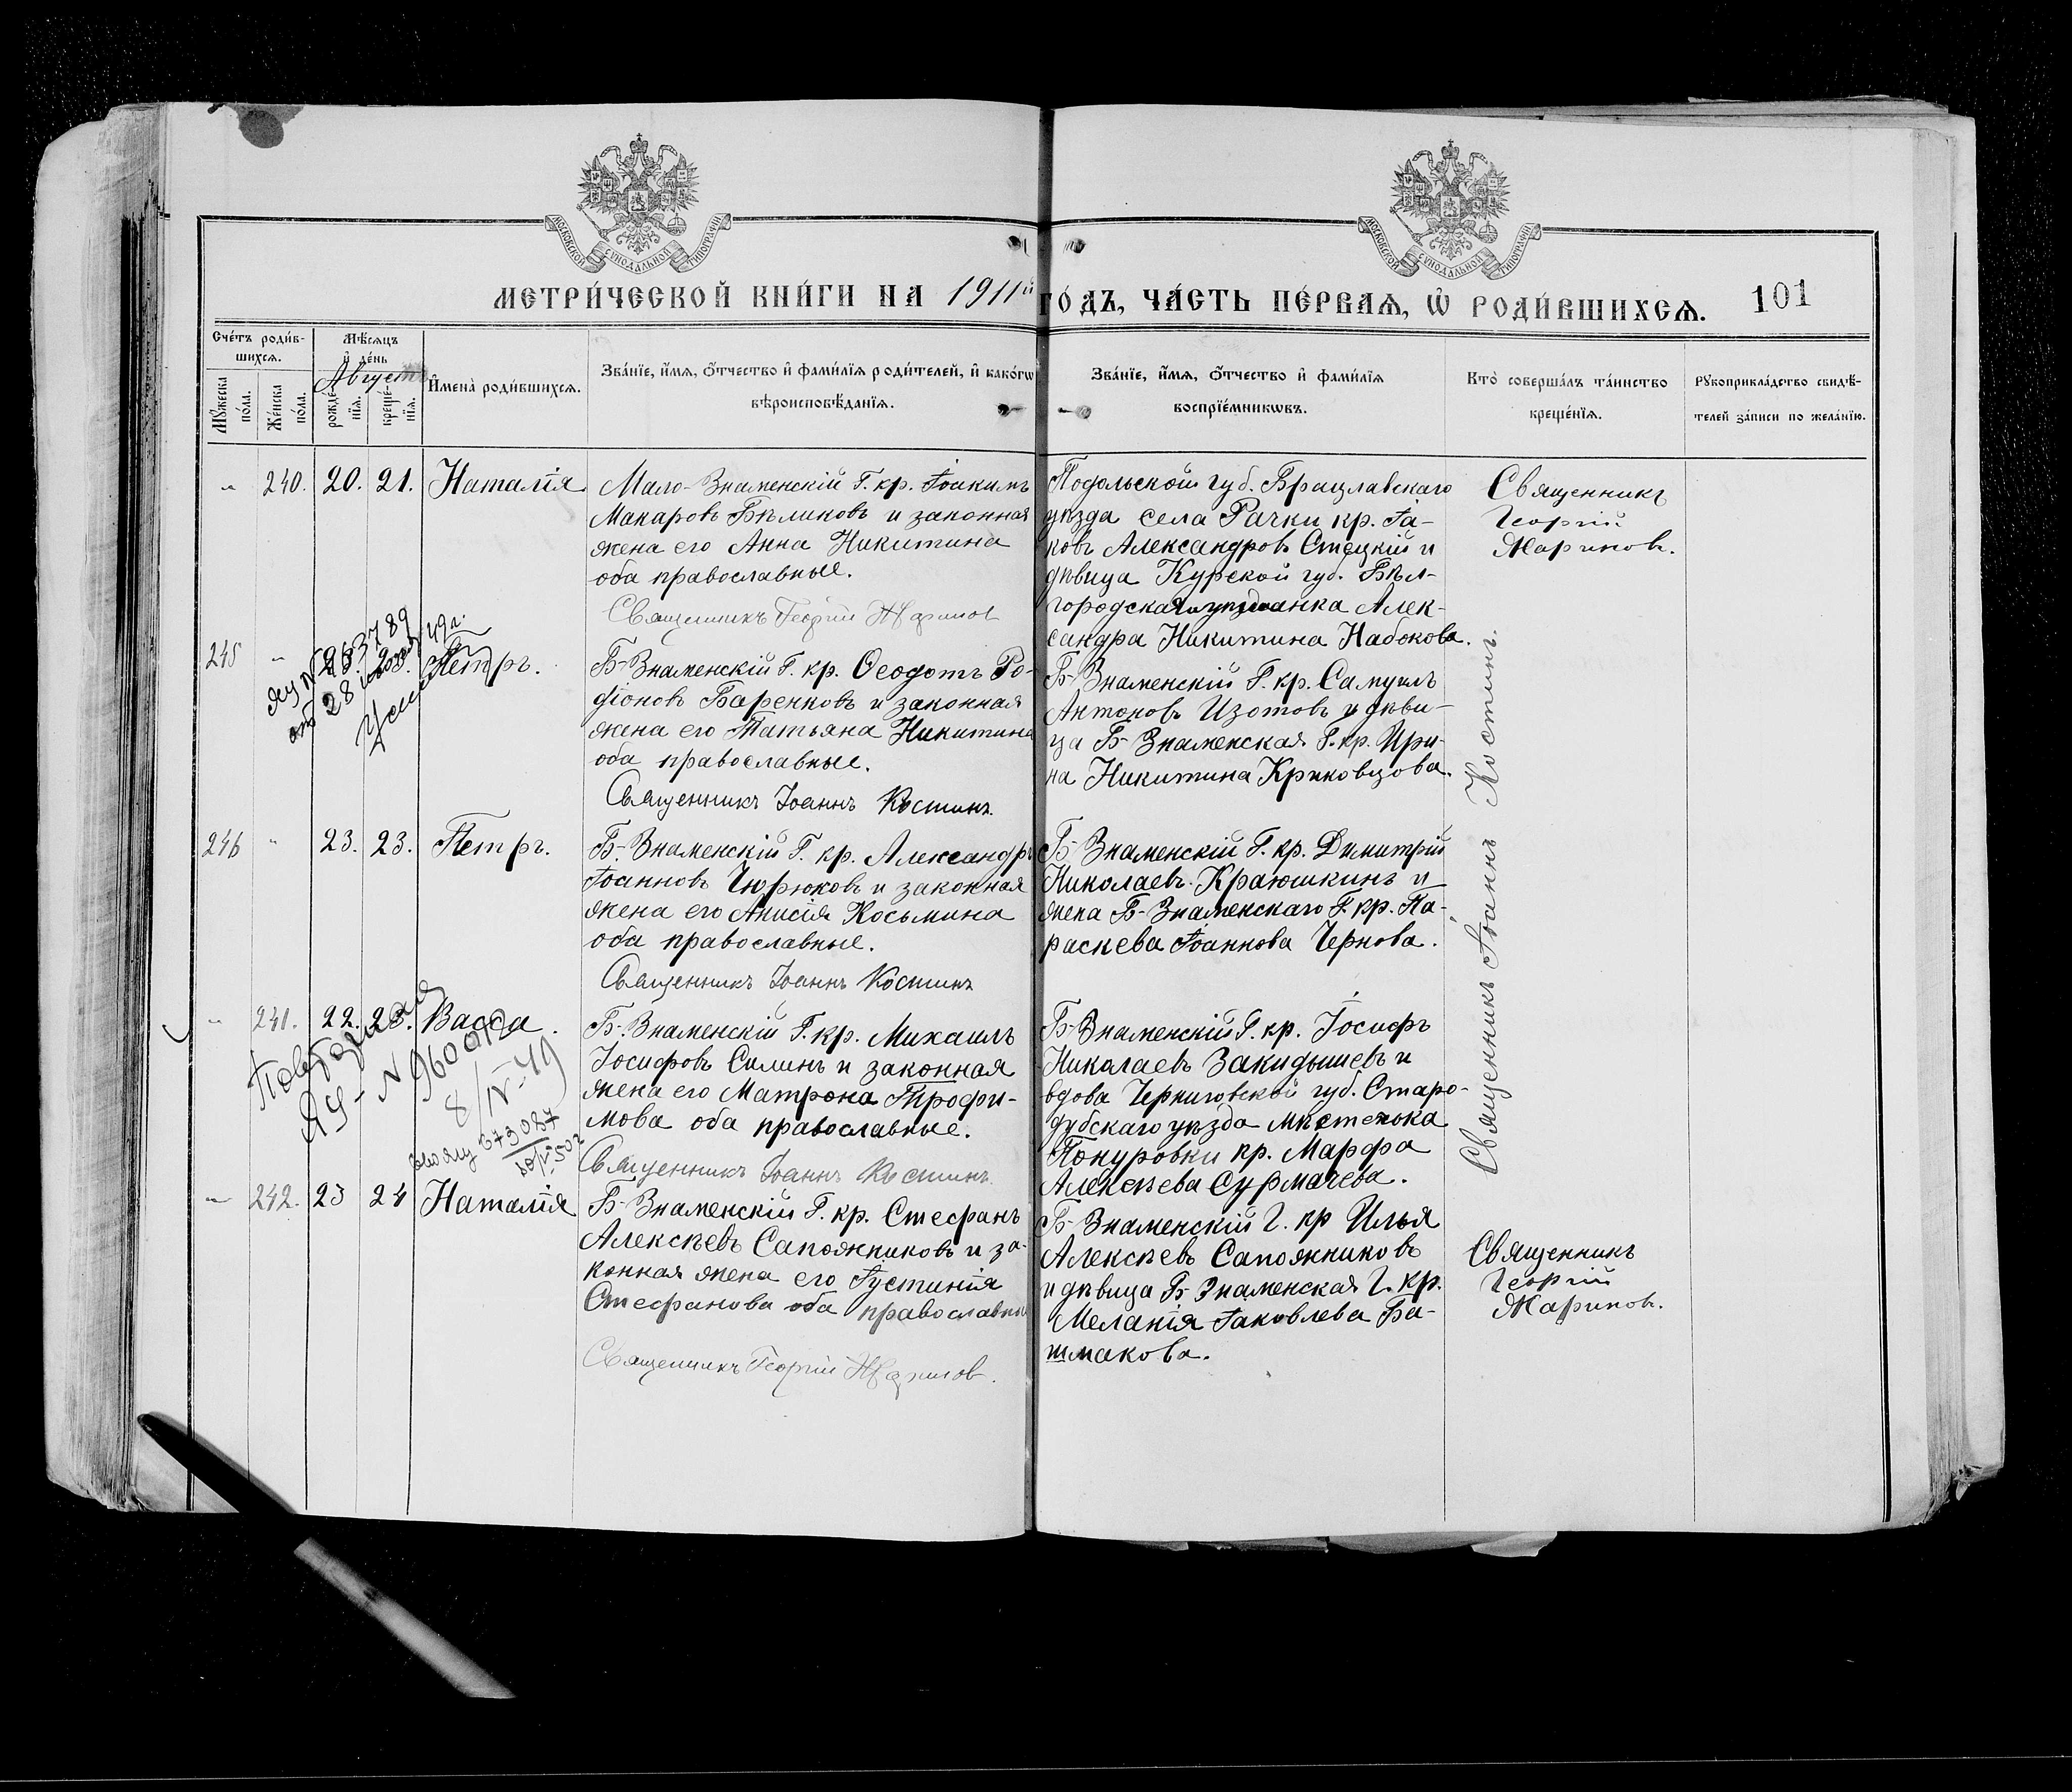 МОСКОВСКОЙ СѴНОДАЛЬНОЙ ТИПОГРАФІИ
МОСКОВСКОЙ СѴНОДАЛЬНОЙ ТИПОГРАФІИ
МЕТРИ́ЧЕСКОЙ КНИ́ГИ НА 1911й ГО́ДЪ, ЧА́СТЬ ПЕ́РВАѦ, Ѡ҆ РОДИ́ВШИХСѦ. 101
Сче́тъ роди́в-
шихсѧ.
Мꙋ́жеска по́ла.
Же́нска по́ла.
Мѣ́сѧцъ
и҆ де́нь
Августъ
рожде́-
нїѧ.
креще́-
нїѧ.
И҆мена̀ роди́вшихсѧ.
Зва́нїе, и҆́мѧ, ѻ҆́тчество и҆ фами́лїѧ роди́телей, и҆ како́гѡ
вѣроисповѣ́данїѧ.
Зва́нїе, и҆́мѧ, ѻ҆́тчество и҆ фами́лїѧ
воспрїе́мникѡвъ.
Кто̀ соверша́лъ та́инство
креще́нїѧ.
Рꙋкоприкла́дство свидѣ́-
телей за́писи по жела́нїю.
" 240. 20. 21. Наталія
Мало-Знаменскій Г. кр. Іоакимъ
Макаровъ Бѣликовъ и законная
жена его Анна Никитина
оба православные.
Священникъ Георгій Жаринов
Подольской губ. Брацлавскаго
уѣзда села Рачки кр. Іа-
ковъ Александровъ Стецкій и
дѣвица Курской губ. Бѣл-
городская мѣщанка Алек-
сандра Никитина Набокова.
Священникъ
Георгій
Жариновъ.
245 " 23. Петръ.
Б-Знаменскій Г. кр. Ѳеодотъ Ро-
діоновъ Баренковъ и законная
жена его Татьяна Никитина
оба православные.
Священникъ Іоаннъ Костинъ
Б-Знаменскій Г. кр. Самуилъ
Антоновъ Изотовъ и дѣви-
ца Б-Знаменская Г. кр. Ири-
на Никитина Криковцова.
Священникъ Іоаннъ Костинъ.
246 " 23. 23. Петръ.
Б-Знаменскій Г. кр. Александръ
Іоанновъ Чюрюковъ и законная
жена его Анисія Косьмина
оба православные.
Священникъ Іоаннъ Костинъ
Б-Знаменскій Г. кр. Димитрій
Николаевъ Краюшкинъ и
жена Б-Знаменскаго Г. кр. Па-
раскева Іоаннова Чернова.
" 241. 22. 23. Васса.
Повторная
ЯЧ- N 960012
8/IV-49
673087
Б-Знаменскій Г. кр. Михаилъ
Іосифовъ Силинъ и законная
жена его Матрона Трофи-
мова оба православные.
Священникъ Іоаннъ Костинъ
Б-Знаменскій Г. кр. Іосифъ
Николаевъ Закидышевъ и
вдова Черниговской губ. Старо-
дубскаго уѣзда мѣстечка
Понуровки кр. Марфа
Алексѣева Сурмачева.
" 242. 23 24 Наталія
Б-Знаменскій Г. кр. Стефанъ
Алексѣевъ Сапожниковъ и за-
конная жена его Іустинія
Стефанова оба православны
Священникъ Георгій Жаринов.
Б-Знаменскій Г. кр Илья
Алексѣевъ Сапожниковъ
и дѣвица Б-Знаменская Г. кр.
Меланія Іаковлева Ба-
шмакова.
Священникъ
Георгій
Жариновъ.